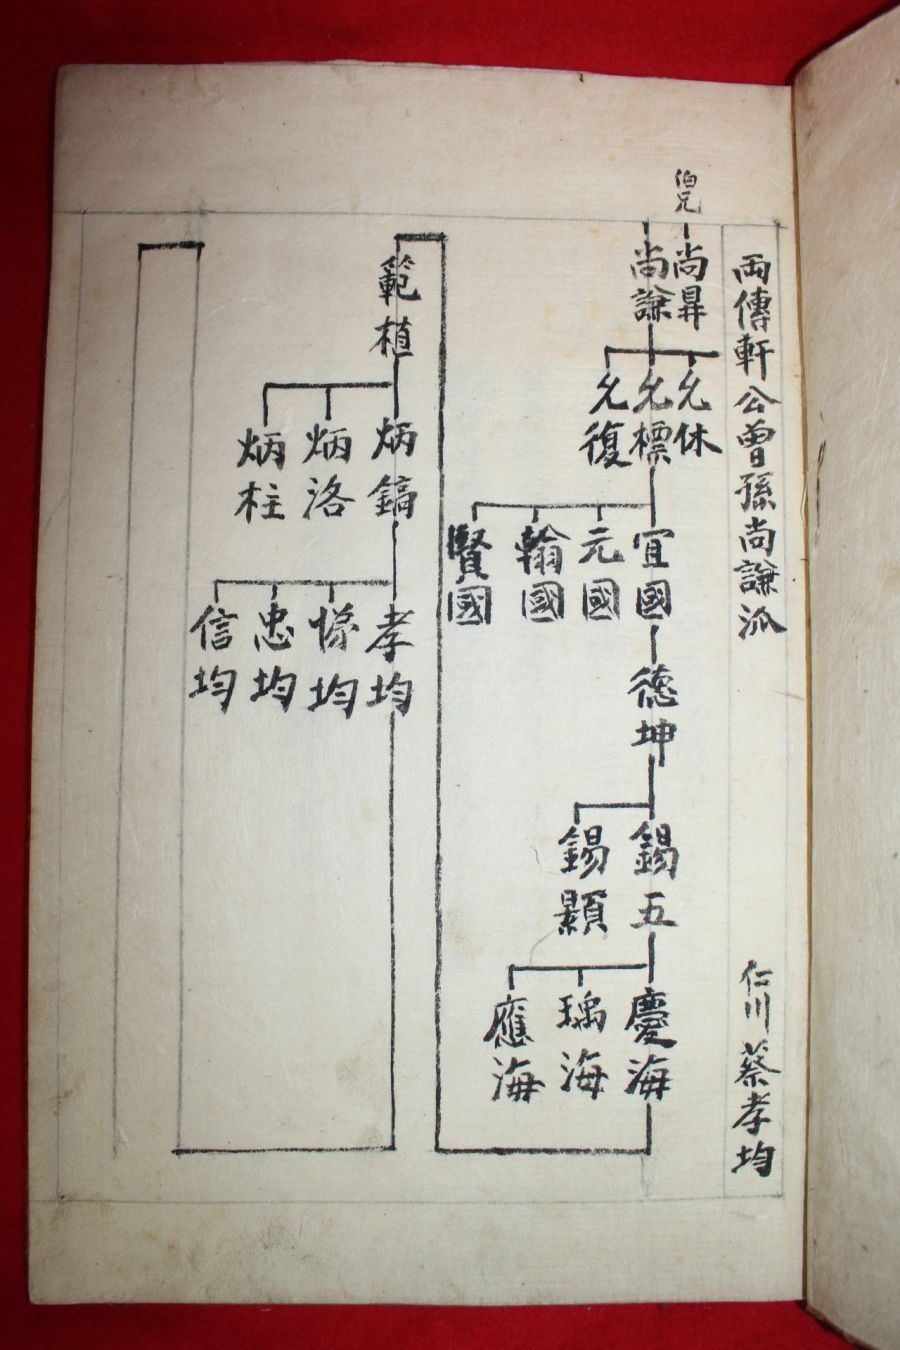 兩傳軒公曾孫尚謙派
仁川蔡孝均
伯兄
尚昇
尚謙
允休
允標
允復
宜國
元國
翰國
賢國
德坤
錫五
錫顯
慶海
瑀海
應海
範植
炳鎬
炳洛
炳柱
孝均
悌均
忠均
信均